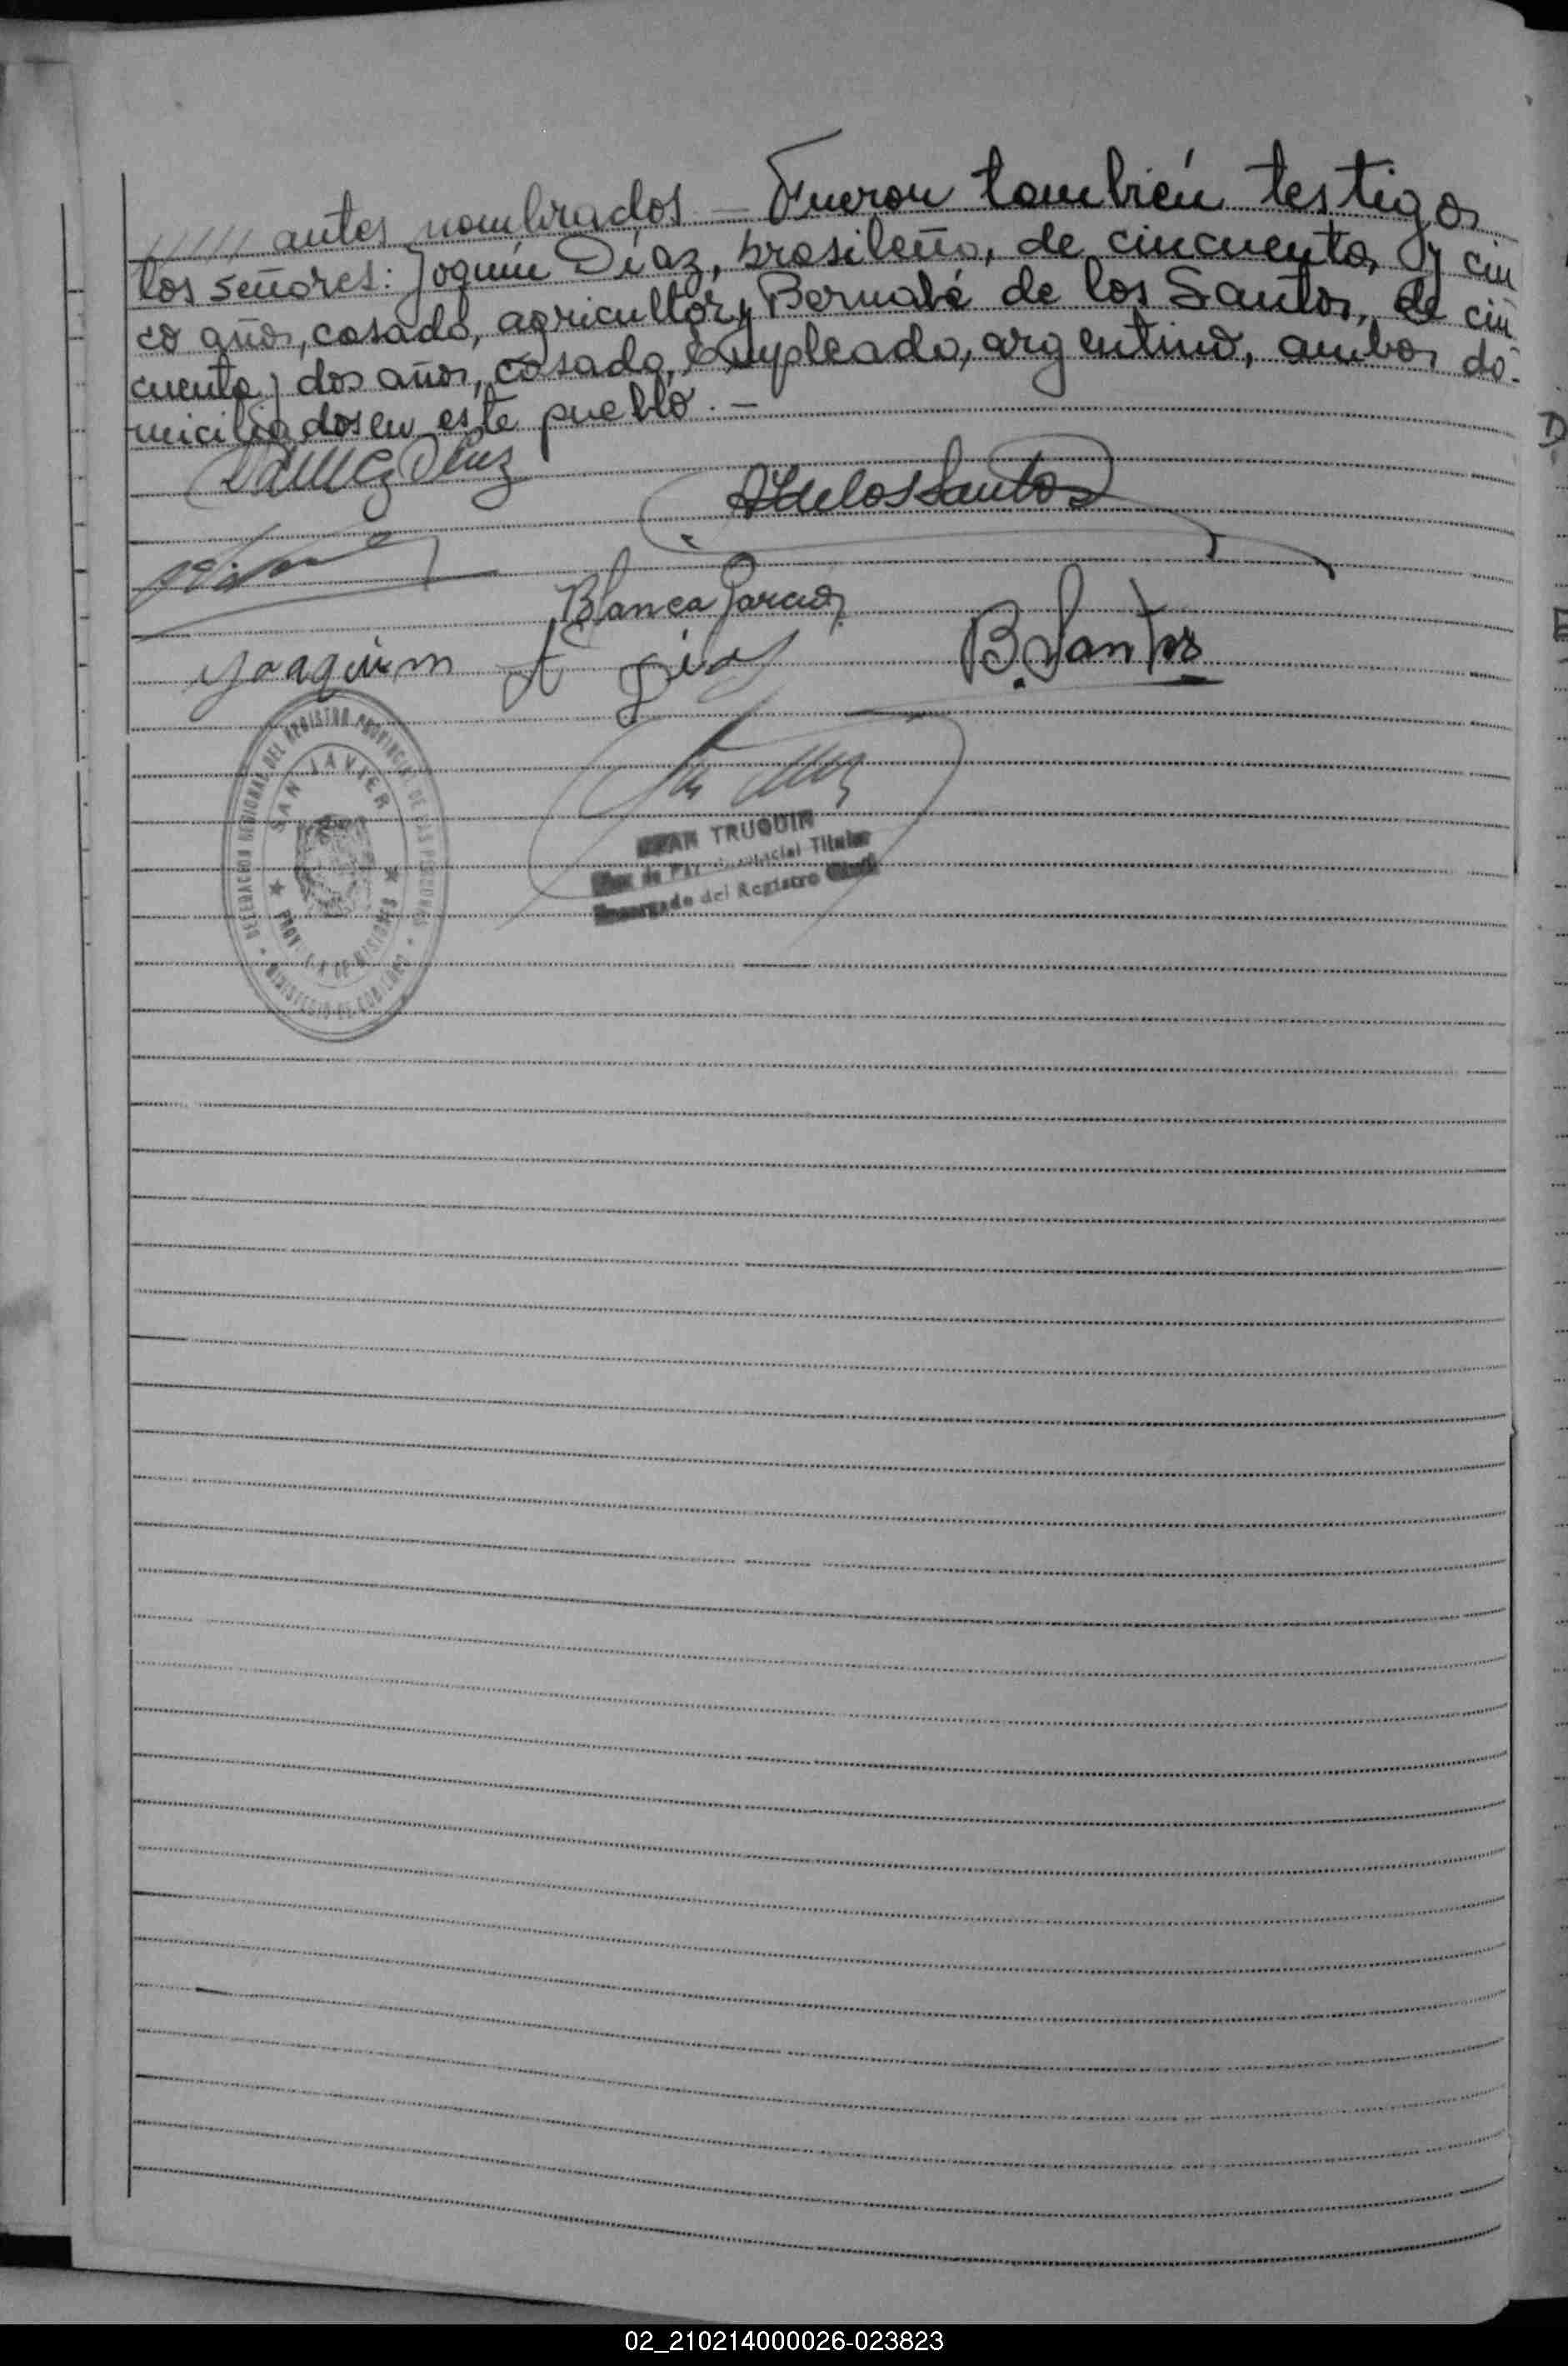 ///// antes nombrados. — Fueron también testigos
los señores: Joquín Díaz, brasileño, de cincuenta y cin
co años, casado, agricultor y Bernabé de los Santos, de cin
cuenta y dos años, casado, empleado, argentino, ambos do-
miciliados en este pueblo. —
A de los Santos
Blanca Garcia
Joaquim
B. Santos
DELEGACION REGIONAL DEL REGISTRO PROVINCIAL DE LAS PERSONAS
SAN JAVIER
PROVINCIA DE MISIONES
MINISTERIO DE GOBIERNO
TRUQUIN
Juez de Paz Titular
Encargado del Registro Civil
D
E
02_210214000026-023823